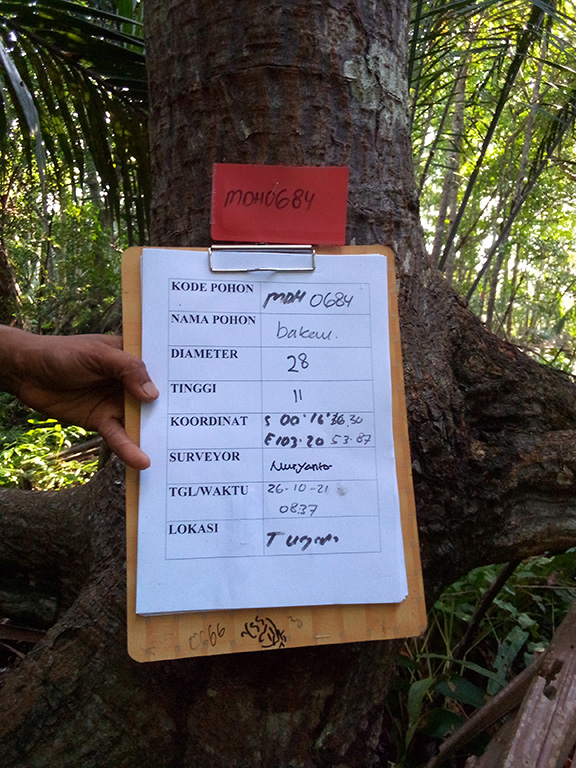 MDH0684
KODE POHON MDH 0684
NAMA POHON bakau.
DIAMETER 28
TINGGI 11
KOORDINAT S 00°16'36.30
E103.20 53.87
SURVEYOR Nuryanto
TGL/WAKTU 26-10-21
08.37
LOKASI
0666